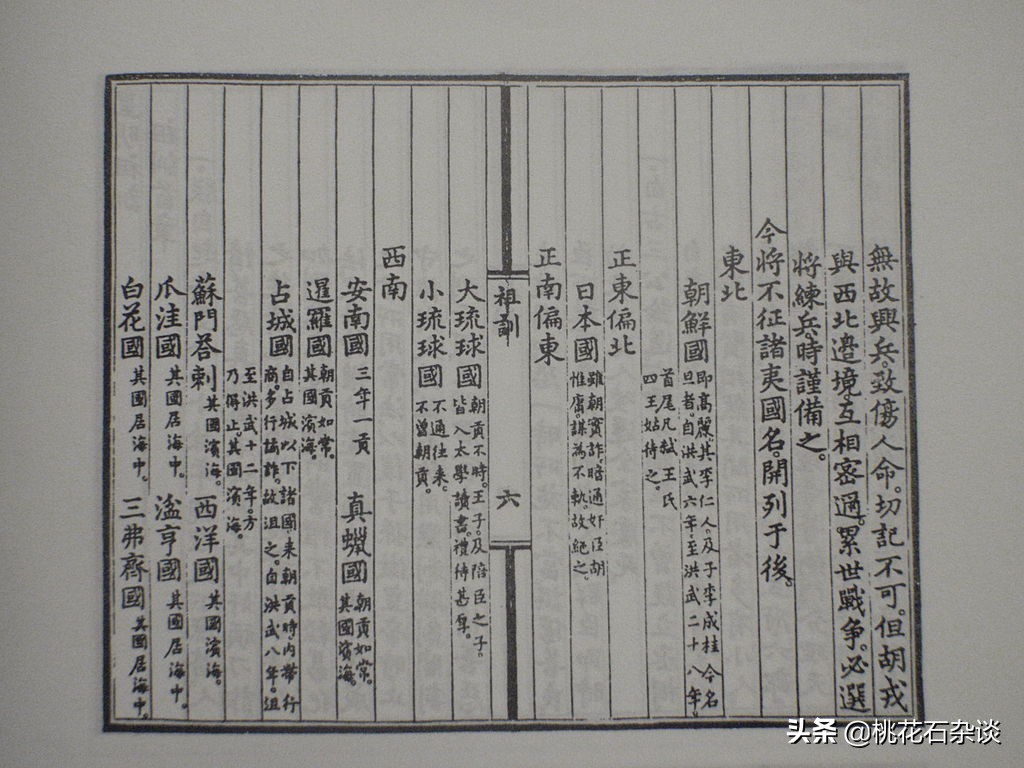 無故興兵。致傷人命。切記不可。但胡戎
與西北邊境。互相密邇。累世戰争。必選
將練兵。時謹備之。
今將不征諸夷國名。開列于後。
東北
朝鮮國 即高麗。其李仁人。及子李成桂今名
旦者。自洪武六年。至洪武二十八年。
首尾凡弑王氏
四王。姑待之。
正東偏北
日本國 雖朝實詐。暗通奸臣胡
惟庸。謀為不軌。故絕之。
正南偏東
祖訓
六
大琉球國 朝貢不時。王子。及陪臣之子。
皆入太學讀書。禮待甚厚。
小琉球國 不通往来。
不曾朝貢。
西南
安南國 三年一貢 真蠟國 朝貢如常。
其國濱海。
暹羅國 朝貢如常。
其國濱海。
占城國 自占城以下諸國。来朝貢時。内帶行
商。多行譎詐。故沮之。自洪武八年。沮
至洪武十二年。方
乃得止。其國濱海。
蘇門荅剌 其國濱海。 西洋國 其國濱海。
爪洼國 其國居海中。 湓亨國 其國居海中。
白花國 其國居海中。 三弗齊國 其國居海中。
头条 @桃花石杂谈